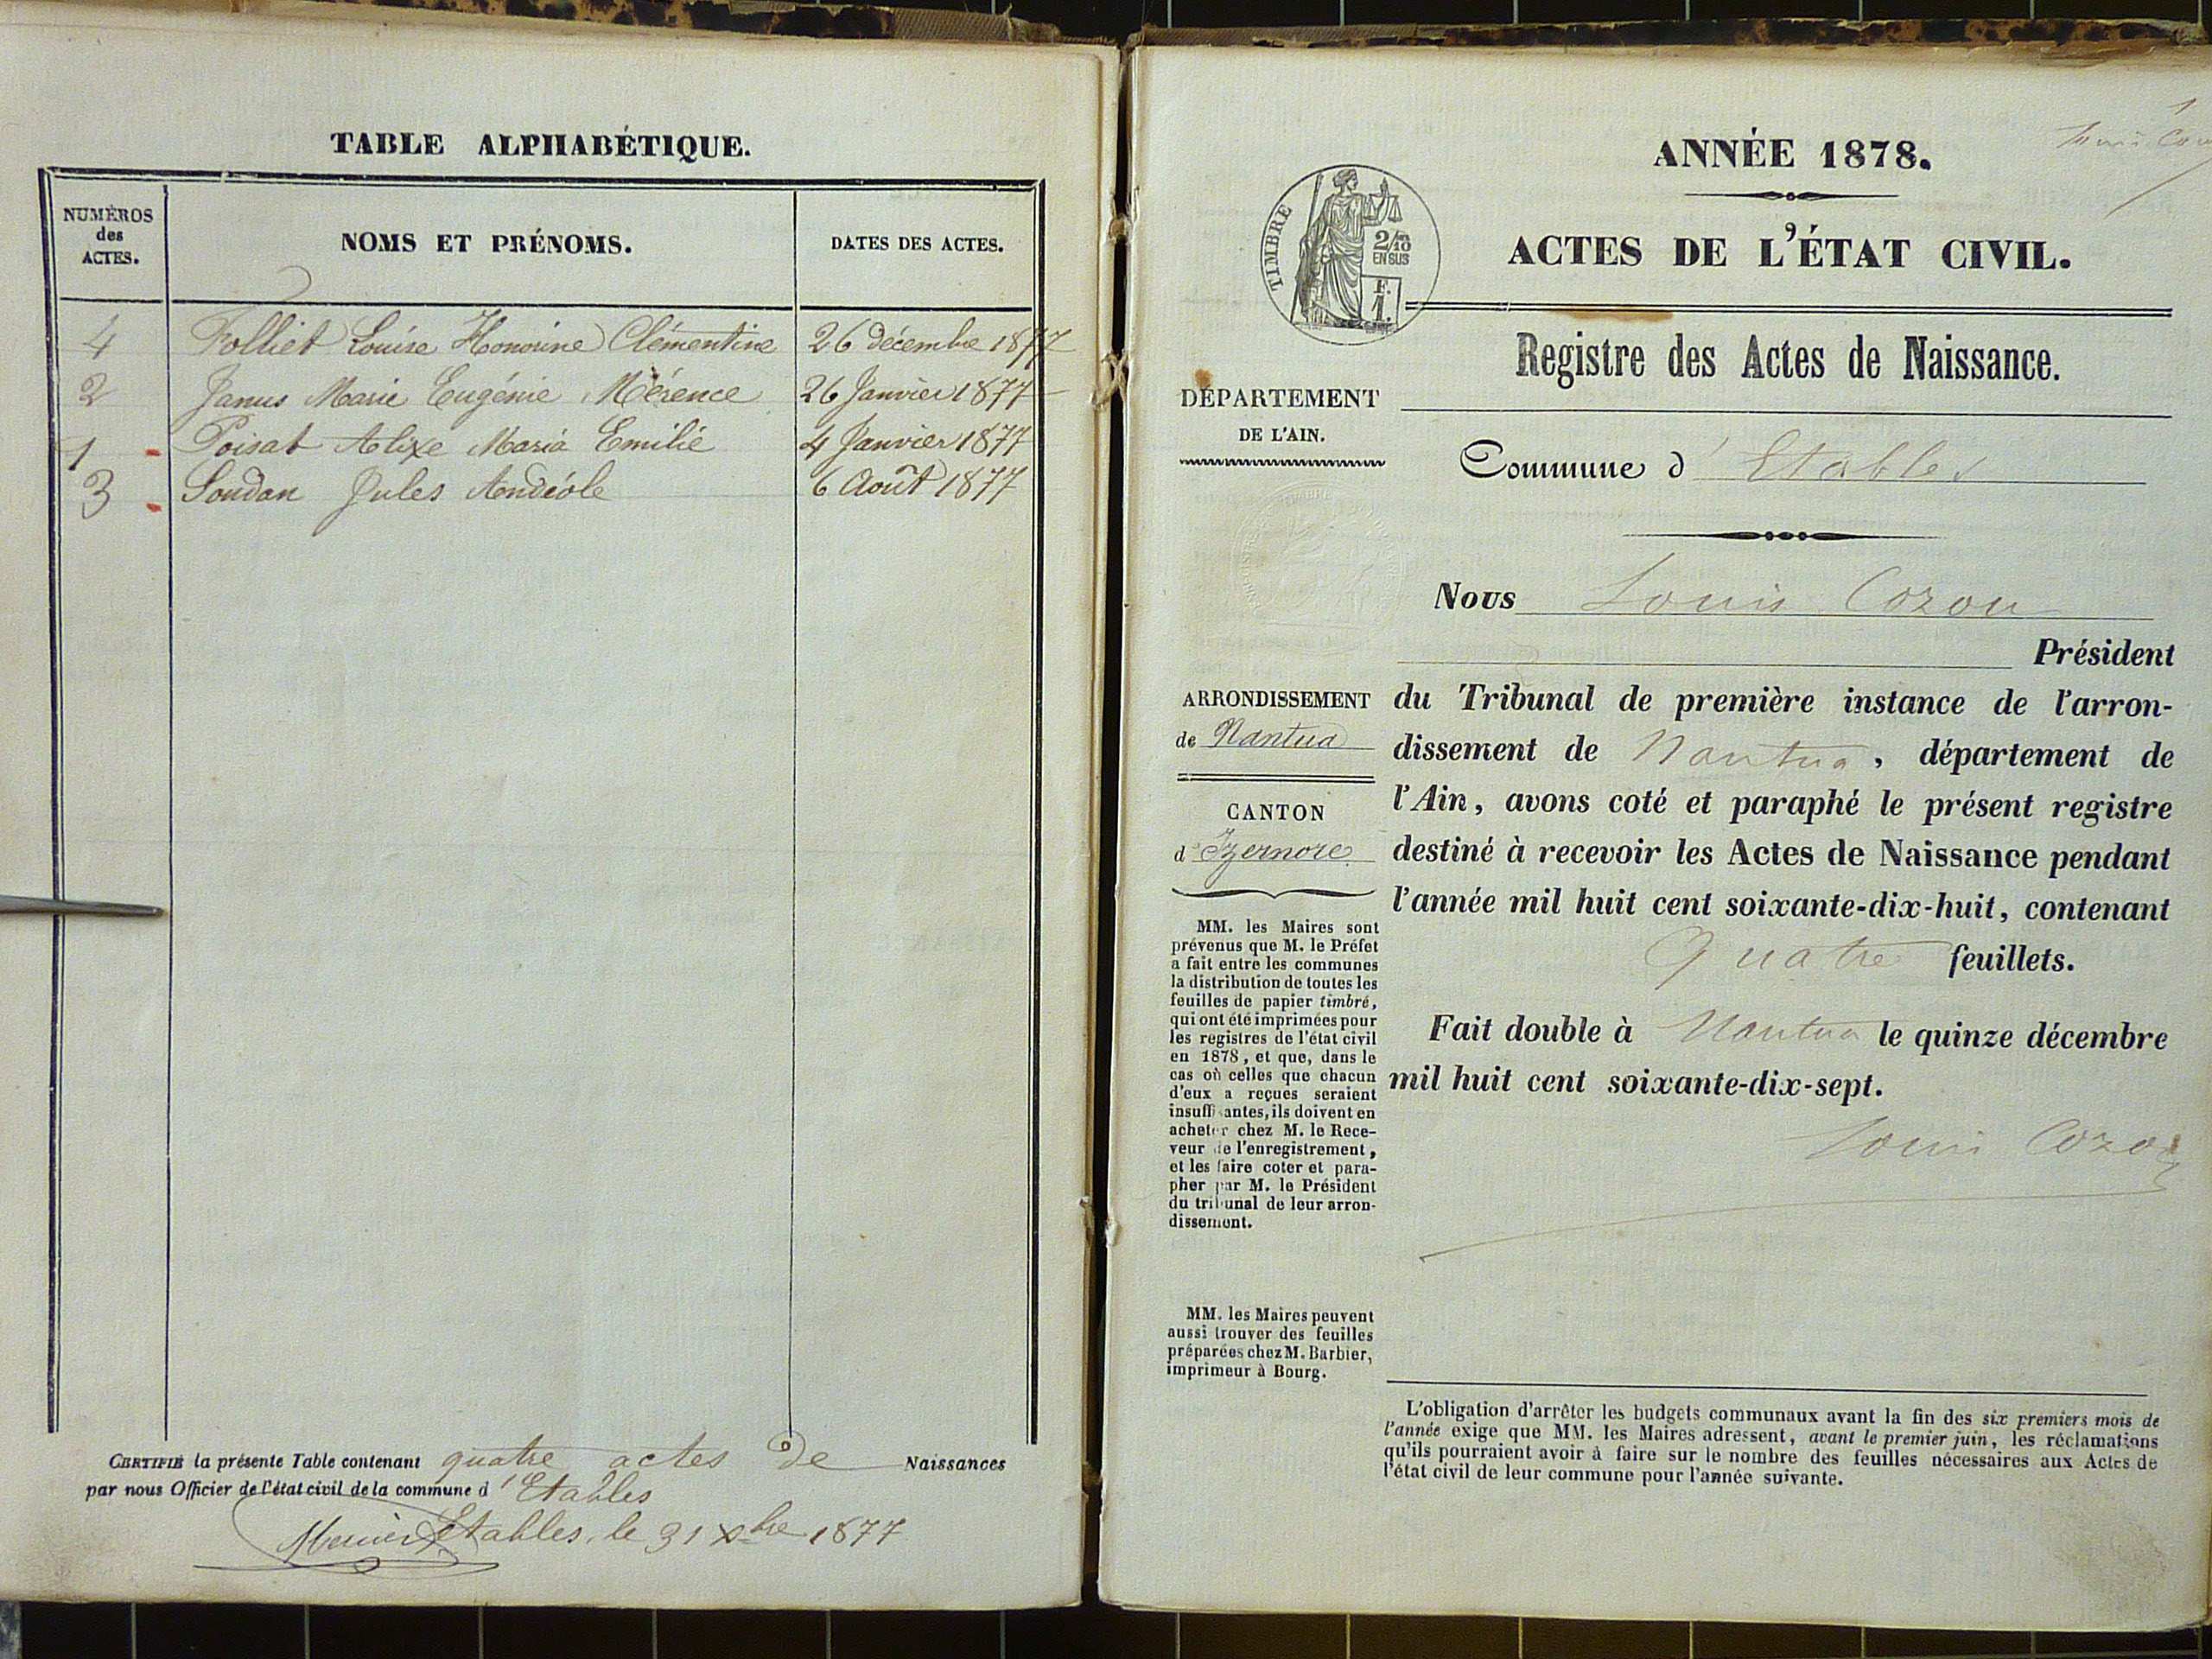 TABLE ALPHABÉTIQUE.
NUMÉROS
des
ACTES.
NOMS ET PRÉNOMS.
DATES DES ACTES.
4 Folliet Louise Honorine Clémentine 26 décembre 1877
2 Janus Marie Eugénie Mérence 26 Janvier 1877
1 Poisat Alixe Maria Emilie 4 Janvier 1877
3 Soudan Jules Andéole 6 Août 1877
CERTIFIÉ la présente Table contenant quatre actes de Naissances
par nous Officier de l'état civil de la commune d'Etables
Etables, le 31 Xbre 1877
ANNÉE 1878.
ACTES DE L'ÉTAT CIVIL.
TIMBRE
2/10
EN SUS
F.
1.
Registre des Actes de Naissance.
DÉPARTEMENT
DE L'AIN.
Commune d'Etables
Nous Louis Cozon
Président
du Tribunal de première instance de l'arron-
dissement de Nantua, département de
l'Ain, avons coté et paraphé le présent registre
destiné à recevoir les Actes de Naissance pendant
l'année mil huit cent soixante-dix-huit, contenant
Quatre feuillets.
Fait double à Nantua le quinze décembre
mil huit cent soixante-dix-sept.
Louis Cozon
ARRONDISSEMENT
de Nantua
CANTON
d'Izernore
MM. les Maires sont
prévenus que M. le Préfet
a fait entre les communes
la distribution de toutes les
feuilles de papier timbré,
qui ont été imprimées pour
les registres de l'état civil
en 1878, et que, dans le
cas où celles que chacun
d'eux a reçues seraient
insuffisantes, ils doivent en
acheter chez M. le Rece-
veur de l'enregistrement,
et les faire coter et para-
pher par M. le Président
du tribunal de leur arron-
dissement.
MM. les Maires peuvent
aussi trouver des feuilles
préparées chez M. Barbier,
imprimeur à Bourg.
L'obligation d'arrêter les budgets communaux avant la fin des six premiers mois de
l'année exige que MM. les Maires adressent, avant le premier juin, les réclamations
qu'ils pourraient avoir à faire sur le nombre des feuilles nécessaires aux Actes de
l'état civil de leur commune pour l'année suivante.